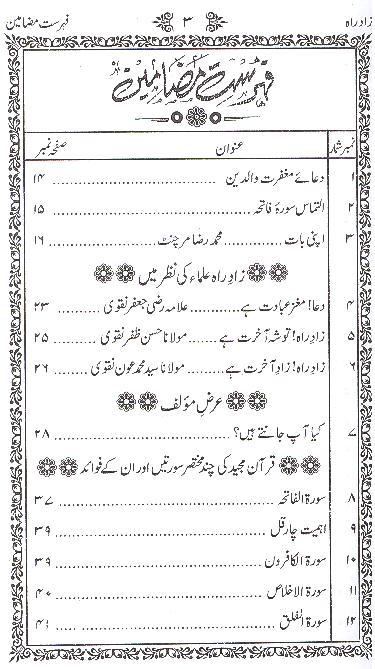 زادراہ ۳ فہرست مضامین
فہرست مضامین
نمبر شمار عنوان صفحہ نمبر
۱ دعائے مغفرت والدین ........ ۱۴
۲ التماس سورۂ فاتحہ ........ ۱۵
۳ اپنی بات ........ محمد رضا مرچنٹ ........ ۱۶
زادِ راہ علماء کی نظر میں
۴ دعا! مغز عبادت ہے ........ علامہ رضی جعفر نقوی ........ ۲۳
۵ زادِ راہ! توشۂ آخرت ہے ........ مولانا حسن ظفر نقوی ........ ۲۵
۶ زادِ راہ! زادِ آخرت ہے ........ مولانا سید محمد عون نقوی ........ ۲۶
عرضِ مؤلف
۷ کیا آپ جانتے ہیں؟ ........ ۲۸
قرآن مجید کی چند مختصر سورتیں اور ان کے فوائد
۸ سورۃ الفاتحہ ........ ۳۷
۹ اہمیت چار قل ........ ۳۹
۱۰ سورۃ الکافرون ........ ۳۹
۱۱ سورۃ الاخلاص ........ ۴۰
۱۲ سورۃ الفلق ........ ۴۱